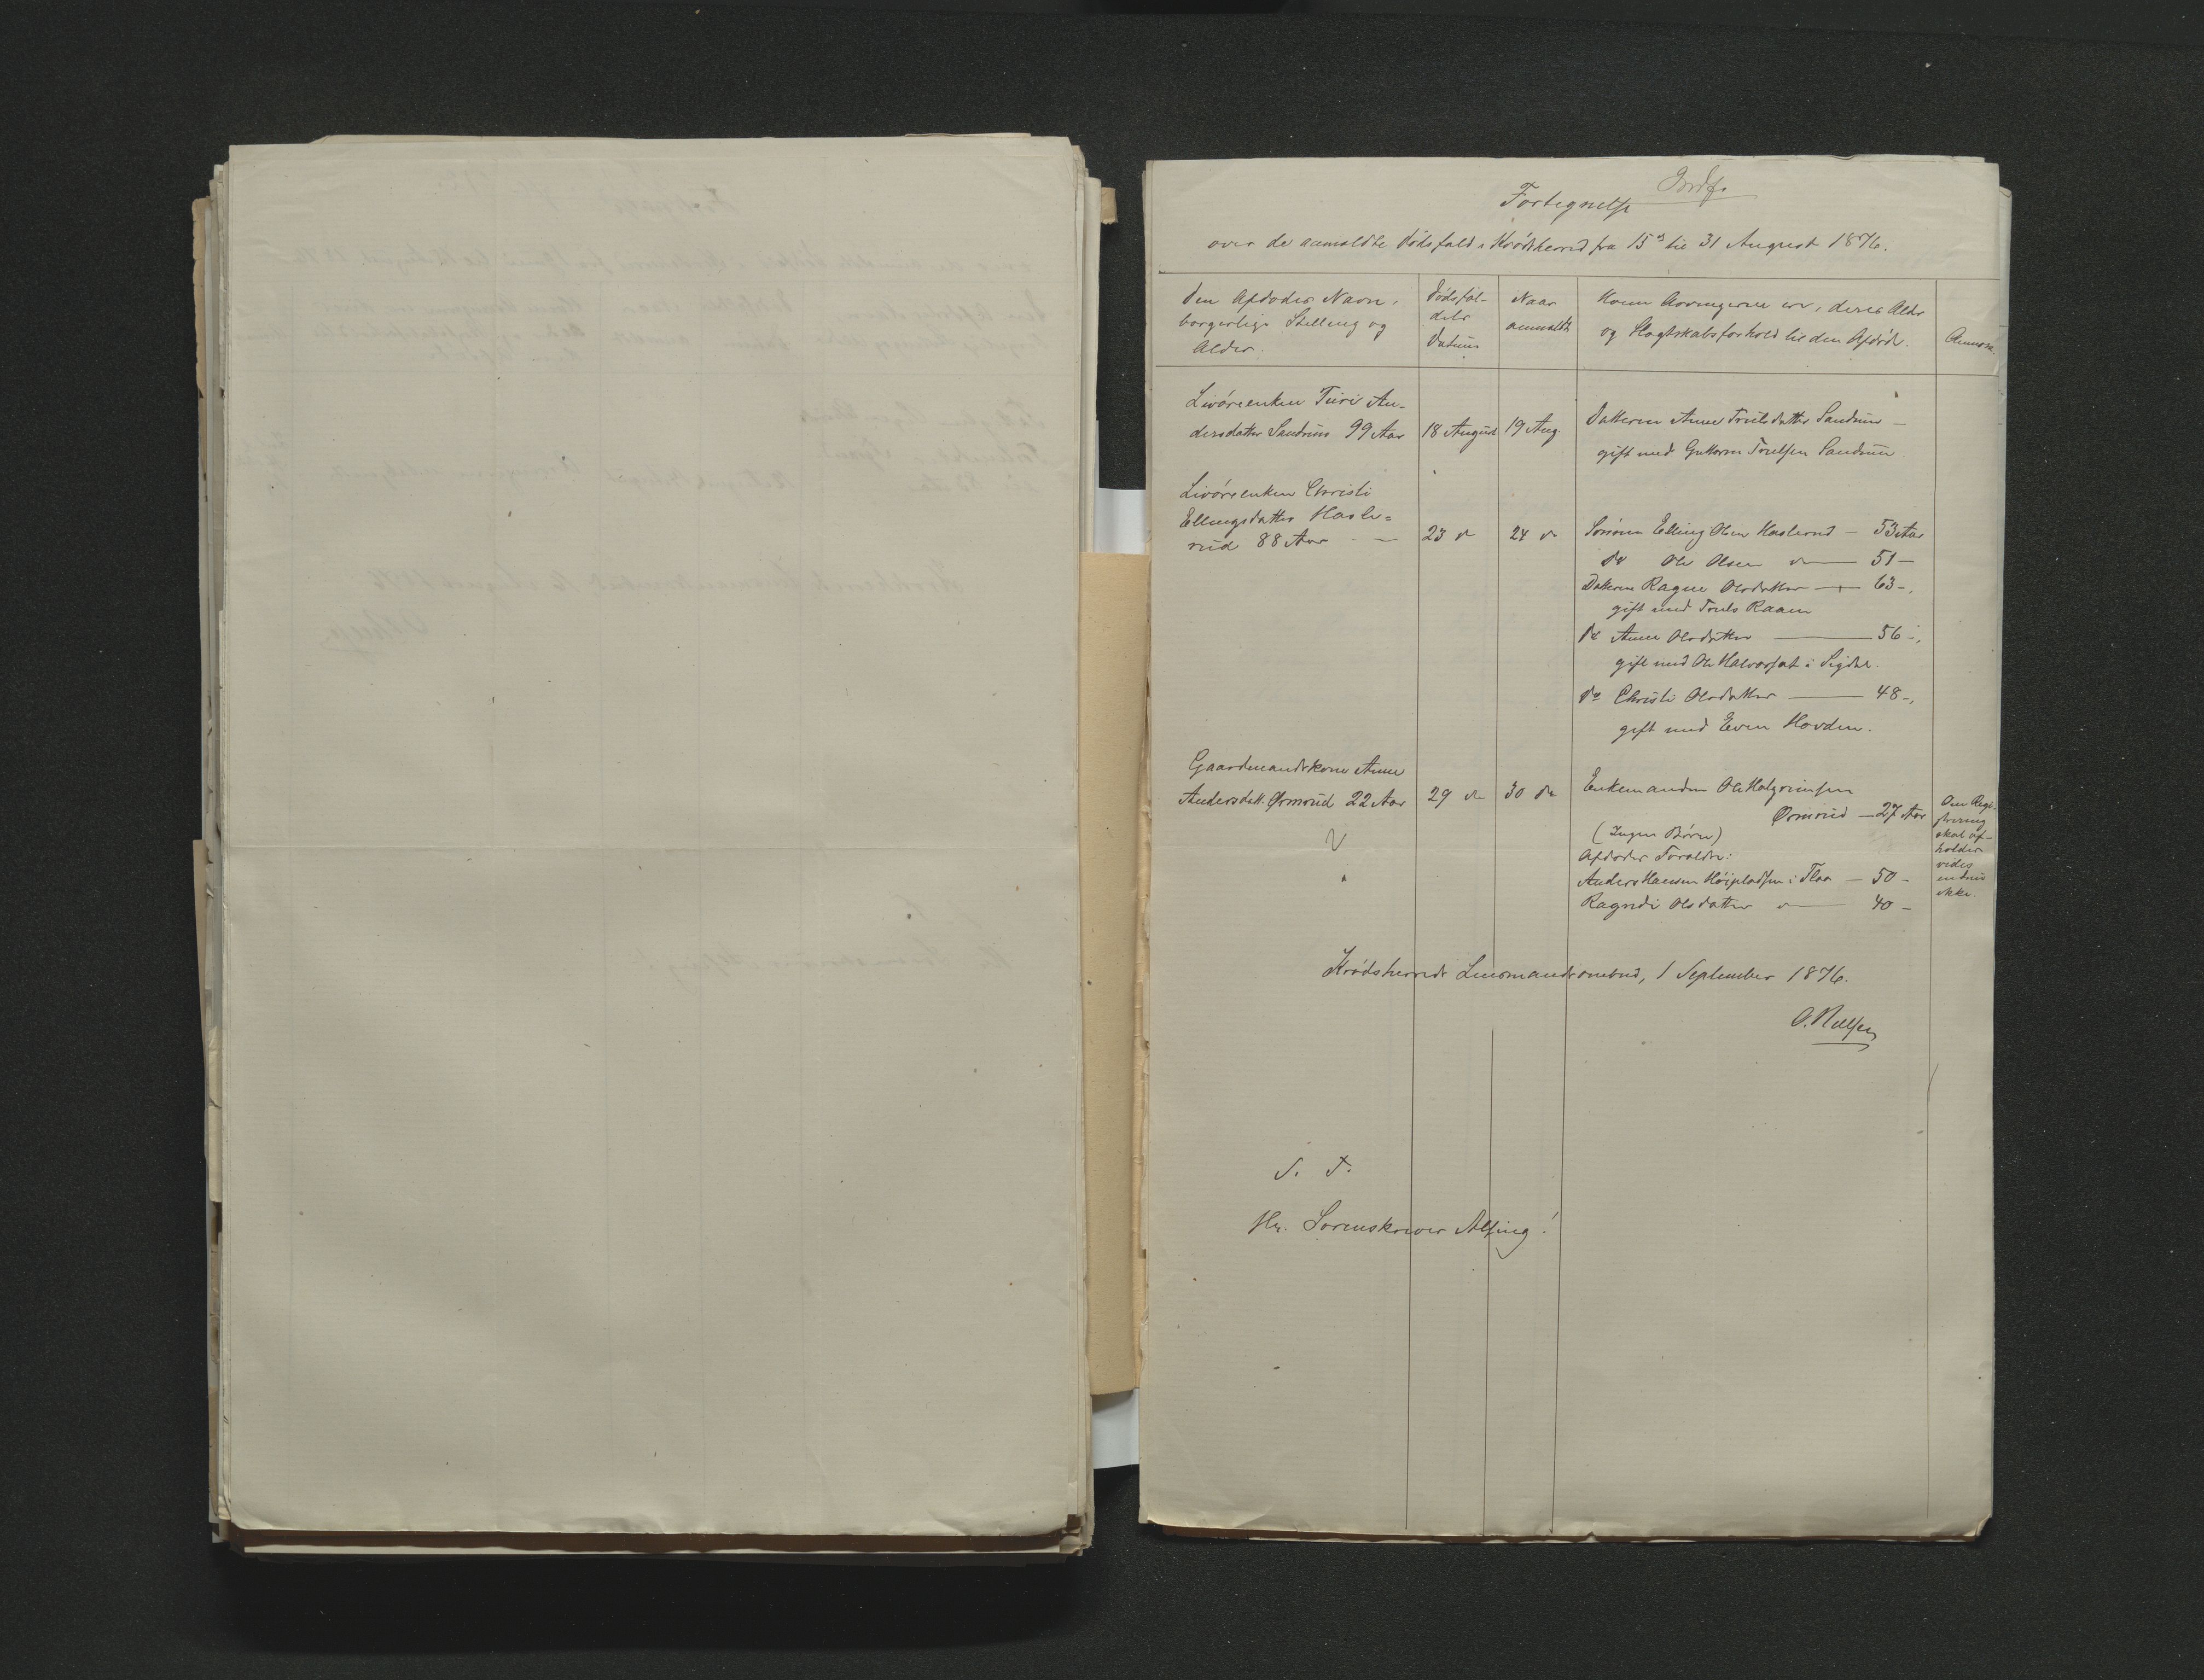 Indf.
Fortegnelse
over de anmeldte Dødsfald i Krødsherred fra 15de til 31 August 1876.
Den Afdødes Navn, borgerlige Stilling og Alder.
Dødsfaldets Datum
Naar anmeldt
Hvem Arvingerne er, deres Alder og Slægtskabsforhold til den Afdøde.
Anmærk.
Livøreenken Turi An-
dersdatter Sandum 99 Aar 18 August 19 Aug.
Datteren Anne Trulsdatter Sandum –
gift med Guttorm Truelsen Sandum
Livøreenken Christi
Ellingsdatter Hasle=
rud 88 Aar – 23 do 24 do
Sønnen Elling Olsen Haslerud – 53 Aar
do Ole Olsen do – 51 –
Datteren Ragne Olsdatter – 63 –
gift med Truls Raaen
do Anne Olsdatter – 56 –
gift med Ole Halvorsat i Sigdal.
do Christi Olsdatter – 48 –
gift med Even Hovden.
Gaardmandskone Anne
Andersdatt. Ørmrud 22 Aar 29 do 30 do
Enkemanden Ole Halgrimsen
Ørmrud – 27 Aar
(Ingen Børn)
Afdødes Forældre:
Anders Hansen Høipladsen i Flaa – 50 –
Ragndi Olsdatter do – 40 –
Om Regi-
strering
skal af-
holdes
vides
endnu
ikke.
Krødsherreds Lensmandsombud, 1 September 1876.
O. Nellsen
S. T.
Hr. Sorenskriver Alsing!